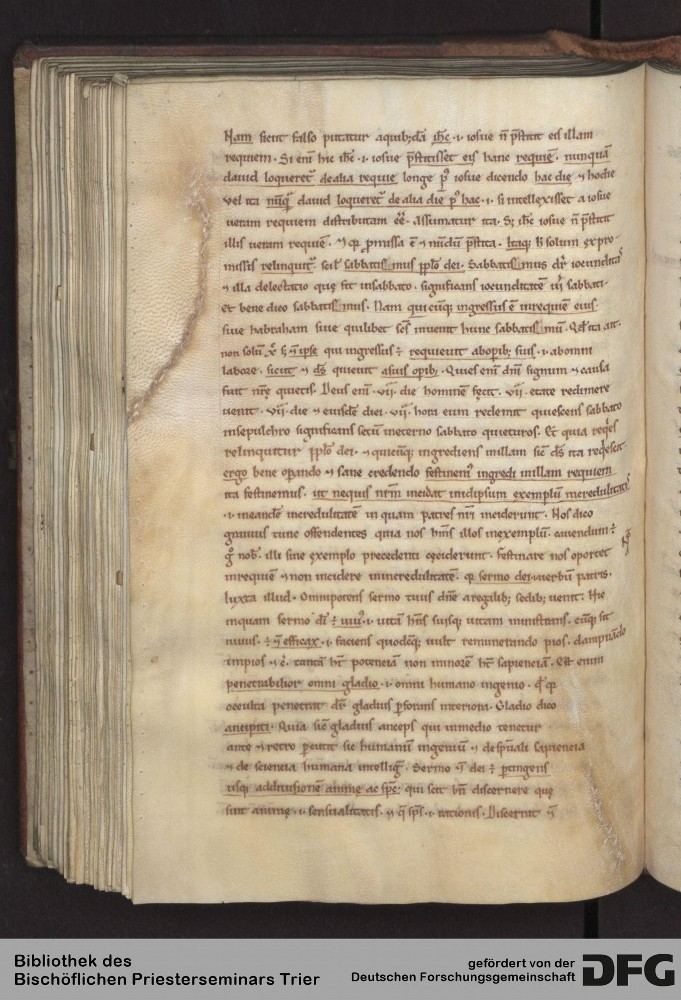 Nam sicut falso putatur a quibꝫdā ihc̄ ·i· iosue n̄ p̄stitit eis illam
requiem · Si eni hic ihc̄ ·i· iosue p̄stitisset eis hanc requiē · nunquā
david loqueret᷑ de alia requie longe p᷒ iosue dicendo hac die ⁊ hodie
vel ita nūq̄ david loqueret᷑ de alia die p᷒ hac ·i· si intellexisset a iosue
veram requiem distributam eē · assumatur ita · Sꝫ ihc̄ iosue n̄ p̄stitit
illis veram requiē · ⁊ ꝓmissa ē ⁊ nūdū p̄stita · Itaqꝫ solum ex pro
missis relinquit᷑ · scil sabbatismus pp̄lo dei · Sabbatismus dr̄ iocundita
⁊ illa delectatio que fit in sabbato · significans iocunditatē sabbati ·
Et bene dico sabbatismus · Nam quicūqꝫ ingressus ē in requiē eius ·
sive habraham sive quilibet scs̄ invenit hunc sabbatismū · ita ait ·
non solū ipse qui ingressus ÷ requievit ab opibꝫ suis ·i· ab omni
labore · sicut ⁊ ds̄ quievit a suis opibꝫ · Quies eni dni signum ⁊ causa
fuit nr̄e quietis · Deus eni ·vii· die hominē fecit · vii · etate redimere
venit · vii · die ⁊ eiusdē diei · vii · hora eum redemit quiescens sabbato
in sepulchro significans secū in eterno sabbato quieturos · Et quia reqes
relinquitur pp̄lo dei · ⁊ quicūqꝫ ingrediens in illam sic̄ ds̄ ita reqescit
ergo bene opando ⁊ sane credendo festinem᷒ ingredi in illam requiem
ita festinemus · ut nequis nrm̄ incidat in idipsum exemplū incredulitatis
·i· in eandē incredulitatē in quam patres nr̄i inciderunt · Nos dico
gravius tunc offendentes quia nos hn̄s illos in exemplū · cavendum ÷
g᷒ nob᷒ · illi sine exemplo precedenti ceciderunt · festinare nos oportet
in requiē ⁊ non incidere in incredulitatē · sermo dei · verbū patris ·
Iuxta illud · Omnipotens sermo tuus dn̄e a regalibꝫ sedibꝫ venit · Hic
inquam sermo di ÷ viv᷒ ·i· vitā hn̄s suisqꝫ vitam ministrans · cūqꝫ sit
vivus · ÷ ⁊ efficax ·i· faciens quodcūqꝫ vult remunerando pios · dampnādo
impios ⁊ · tantā ht̄ potenciā non minorē ht̄ sapienciā · Est enim
penetrabilior omni gladio ·i· omni humano ingenio ·
occulta penetrat dr̄ gladius pforans interiora · Gladio dico
ancipiti · Quia sic̄ gladius anceps qui in medio tenetur
ante ⁊ retro pcutit sic humanū ingeniū ⁊ de spuali sapiencia
⁊ de sciencia humana intelligit · Sermo dei ÷ ptingens
usqꝫ ad divisionē anime ac spc̄ · qui scit discernere que
sint anime ·i· sensualitatis · ⁊ q̄ sps̄ ·i· rationis · Discernit
Bibliothek des
Bischöflichen Priesterseminars Trier
gefördert von der
Deutschen Forschungsgemeinschaft
DFG